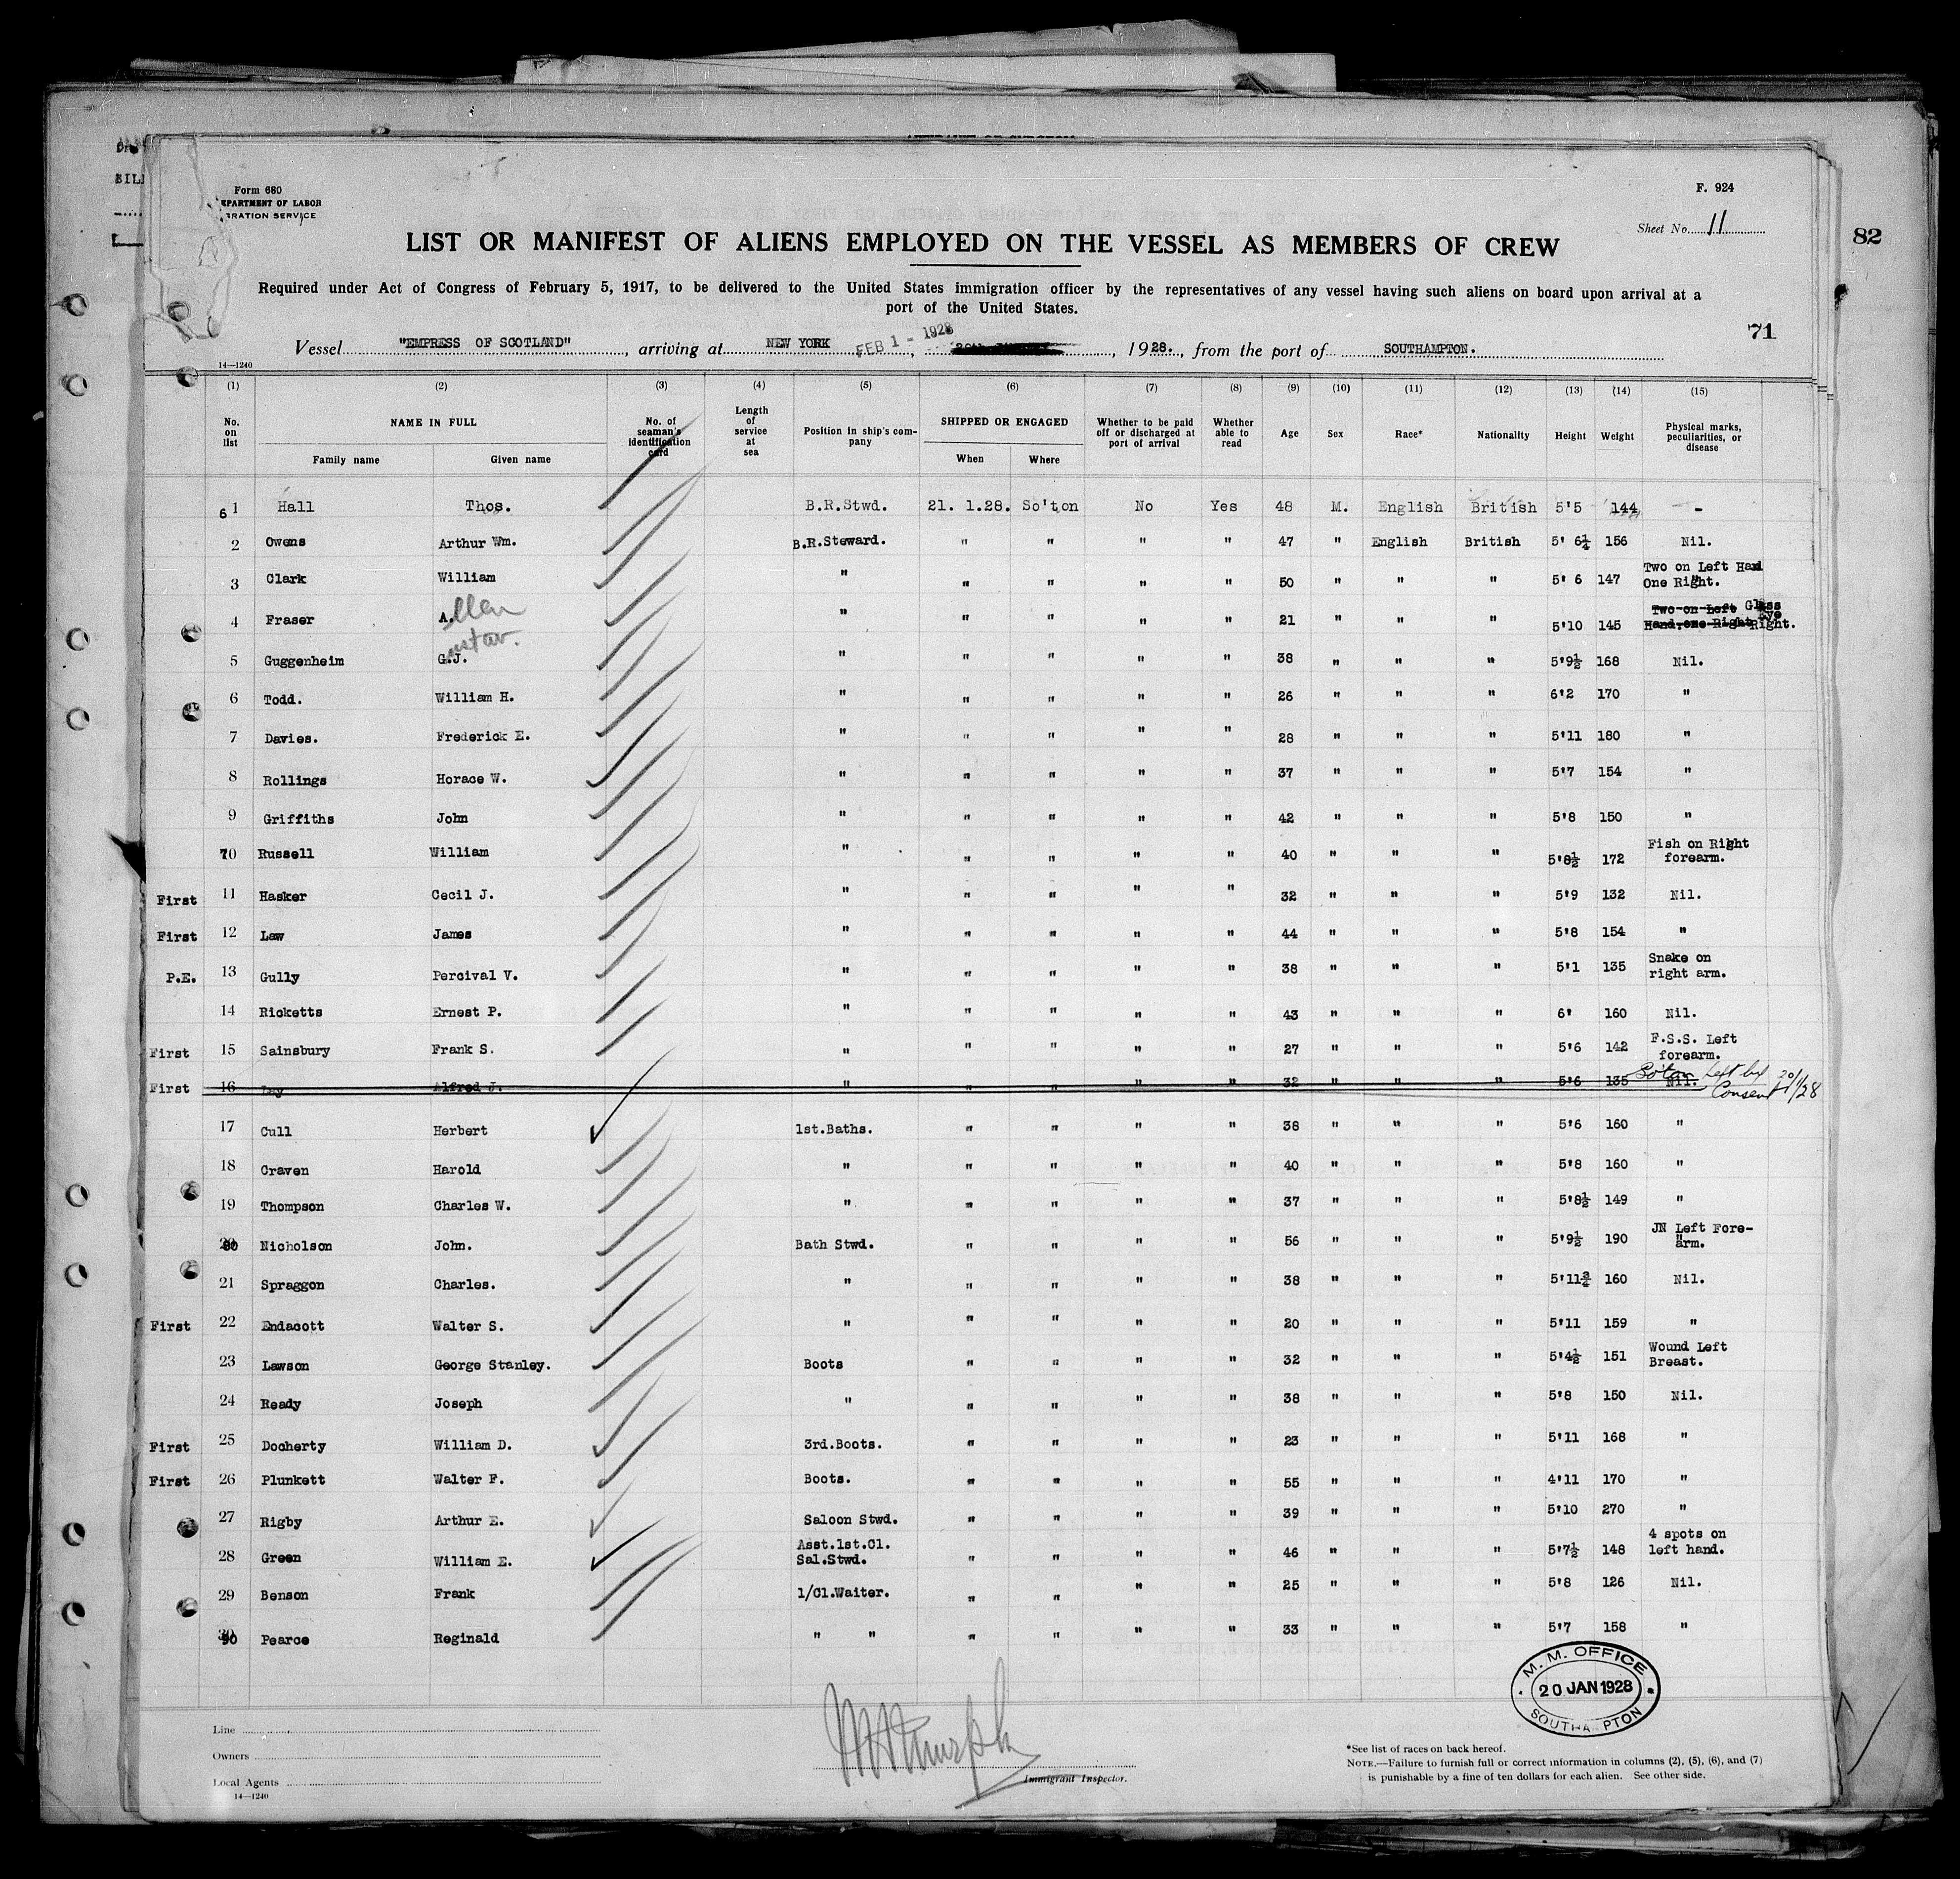 Form 680
EPARTMENT OF LABOR
GRATION SERVICE
F. 924
Sheet No. 11
82
LIST OR MANIFEST OF ALIENS EMPLOYED ON THE VESSEL AS MEMBERS OF CREW
Required under Act of Congress of February 5, 1917, to be delivered to the United States immigration officer by the representatives of any vessel having such aliens on board upon arrival at a
port of the United States.
71
Vessel "EMPRESS OF SCOTLAND", arriving at NEW YORK FEB 1 - 1928, 1928., from the port of SOUTHAMPTON.
14—1240
(1) (2) (3) (4) (5) (6) (7) (8) (9) (10) (11) (12) (13) (14) (15)
No. on list NAME IN FULL Family name Given name No. of seaman's identification card Length of service at sea Position in ship's company SHIPPED OR ENGAGED When Where Whether to be paid off or discharged at port of arrival Whether able to read Age Sex Race* Nationality Height Weight Physical marks, peculiarities, or disease
61 Hall Thos. B.R.Stwd. 21. 1.28. So'ton No Yes 48 M. English British 5'5 144 -
2 Owens Arthur Wm. B.R.Steward. " " " " 47 " English British 5' 6¼ 156 Nil.
3 Clark William " " " " " 50 " " " 5' 6 147 Two on Left Hand One Right.
4 Fraser A. llen " " " " " 21 " " " 5'10 145 Two on Left Hand, one Right Glass Eye Right.
5 Guggenheim G.J. ustav. " " " " " 38 " " " 5'9½ 168 Nil.
6 Todd. William H. " " " " " 26 " " " 6'2 170 "
7 Davies. Frederick E. " " " " " 28 " " " 5'11 180 "
8 Rollings Horace W. " " " " " 37 " " " 5'7 154 "
9 Griffiths John " " " " " 42 " " " 5'8 150 "
70 Russell William " " " " " 40 " " " 5'8½ 172 Fish on Right forearm.
First 11 Hasker Cecil J. " " " " " 32 " " " 5'9 132 Nil.
First 12 Law James " " " " " 44 " " " 5'8 154 "
P.E. 13 Gully Percival V. " " " " " 38 " " " 5'1 135 Snake on right arm.
14 Ricketts Ernest P. " " " " " 43 " " " 6' 160 Nil.
First 15 Sainsbury Frank S. " " " " " 27 " " " 5'6 142 F.S.S. Left forearm.
First 16 Alfred J. " " " " " 32 " " " 5'6 135 Nil. So'ton Left by Consent 20/1/28
17 Cull Herbert 1st.Baths. " " " " 38 " " " 5'6 160 "
18 Craven Harold " " " " " 40 " " " 5'8 160 "
19 Thompson Charles W. " " " " " 37 " " " 5'8½ 149 "
80 Nicholson John. Bath Stwd. " " " " 56 " " " 5'9½ 190 JN Left Fore- arm.
21 Spraggon Charles. " " " " " 38 " " " 5'11¾ 160 Nil.
First 22 Endacott Walter S. " " " " " 20 " " " 5'11 159 "
23 Lawson George Stanley. Boots " " " " 32 " " " 5'4½ 151 Wound Left Breast.
24 Ready Joseph " " " " " 38 " " " 5'8 150 Nil.
First 25 Docherty William D. 3rd.Boots. " " " " 23 " " " 5'11 168 "
First 26 Plunkett Walter F. Boots. " " " " 55 " " " 4'11 170 "
27 Rigby Arthur E. Saloon Stwd. " " " " 39 " " " 5'10 270 "
28 Green William E. Asst.1st.Cl. Sal.Stwd. " " " " 46 " " " 5'7½ 148 4 spots on left hand.
29 Benson Frank 1/Cl.Waiter. " " " " 25 " " " 5'8 126 Nil.
90 Pearce Reginald " " " " " " 33 " " " 5'7 158 "
M. M. OFFICE
20 JAN 1928
SOUTHAMPTON
Line
Owners
Local Agents
14—1240
Immigrant Inspector.
*See list of races on back hereof.
NOTE.—Failure to furnish full or correct information in columns (2), (5), (6), and (7)
is punishable by a fine of ten dollars for each alien. See other side.